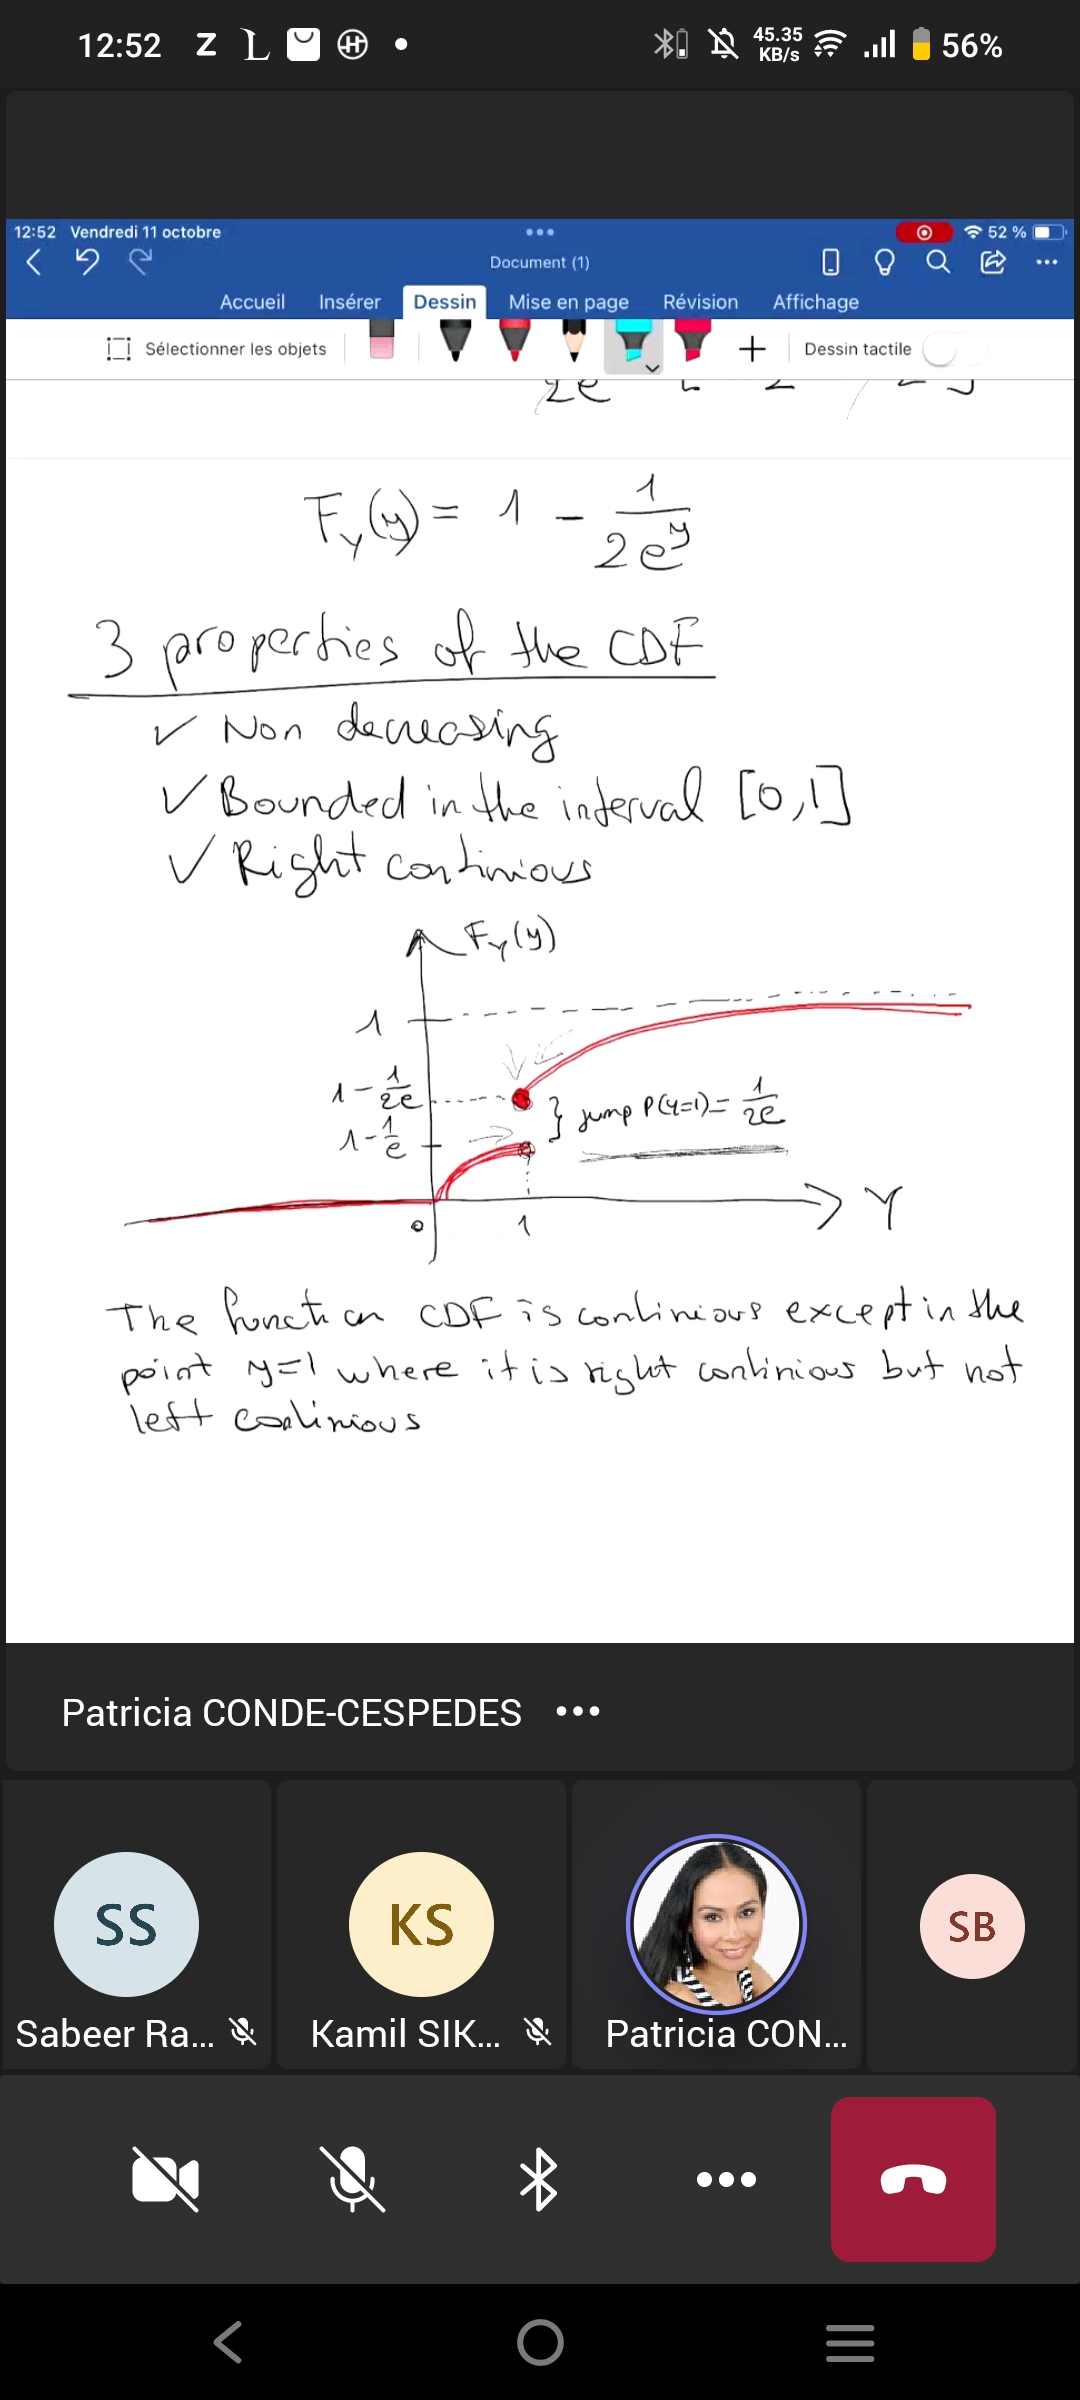 12:52 Z L 45.35 KB/s 56%
12:52 Vendredi 11 octobre 52 %
Document (1)
Accueil Insérer Dessin Mise en page Révision Affichage
Sélectionner les objets Dessin tactile
2e
F_Y(y) = 1 - 1/(2e^y)
3 properties of the CDF
✓ Non decreasing
✓ Bounded in the interval [0,1]
✓ Right continious
F_Y(y)
1
1 - 1/2e
1 - 1/e
} jump P(Y=1) = 1/2e
0 1 Y
The function CDF is continious except in the
point y=1 where it is right continious but not
left continious
Patricia CONDE-CESPEDES
SS KS SB
Sabeer Ra... Kamil SIK... Patricia CON...